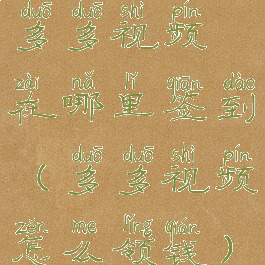 duō duō shì pín
多多视频
zài nǎ lǐ qiān dào
在哪里签到
duō duō shì pín
（多多视频
zěn me lǐng qián
怎么领钱）